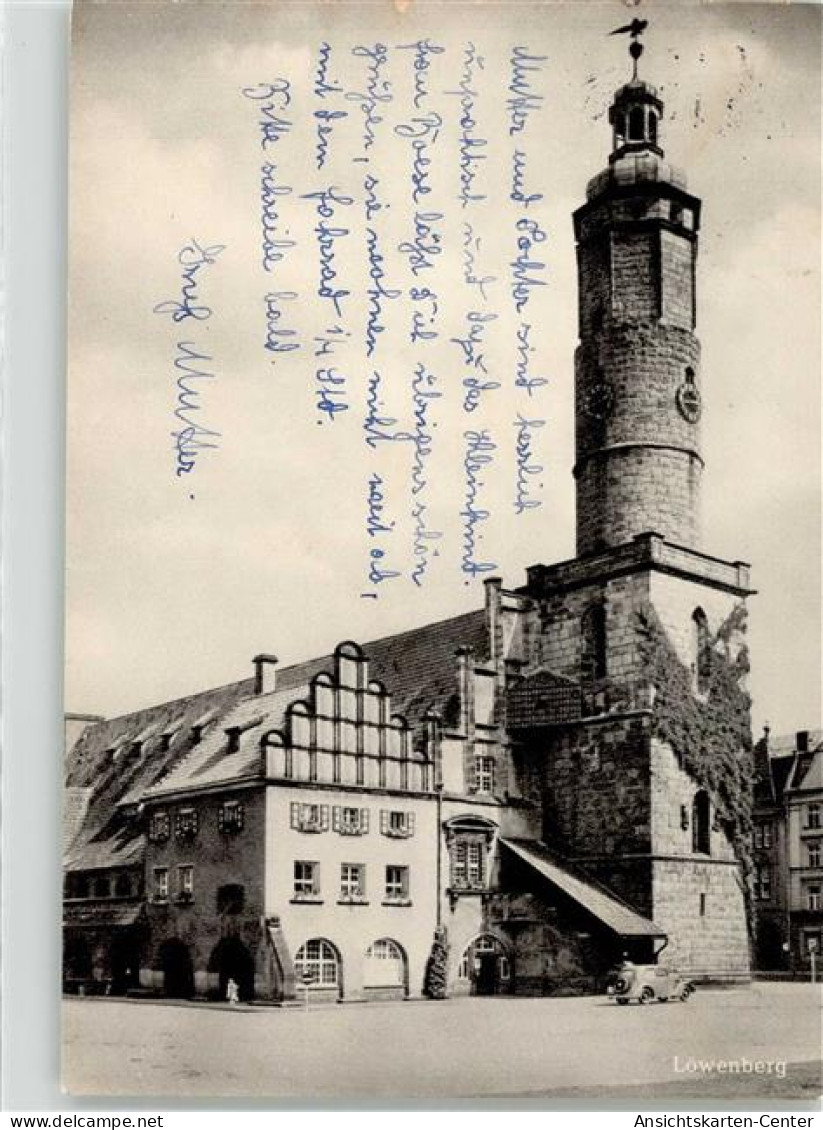 Mutter und Tochter sind herzlich
unpraktisch und dazu das Kleinkind.
Frau Boese läßt Dich übrigens schön
grüßen, sie wohnen nicht weit ab,
mit dem Fahrrad 1/4 Std.
Bitte schreibe bald.
Gruß Mutter.
Löwenberg
oldthing
Ansichtskarten-Center